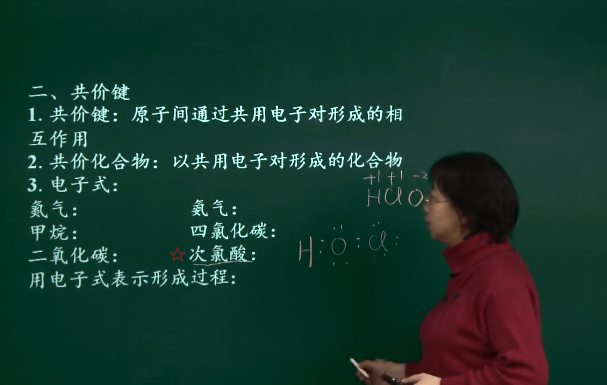 二、共价键
1. 共价键：原子间通过共用电子对形成的相
互作用
2. 共价化合物：以共用电子对形成的化合物
3. 电子式：
+1 +1 -2
HClO
氮气： 氨气：
甲烷： 四氯化碳：
二氧化碳： ☆次氯酸： H:O:Cl:
用电子式表示形成过程：